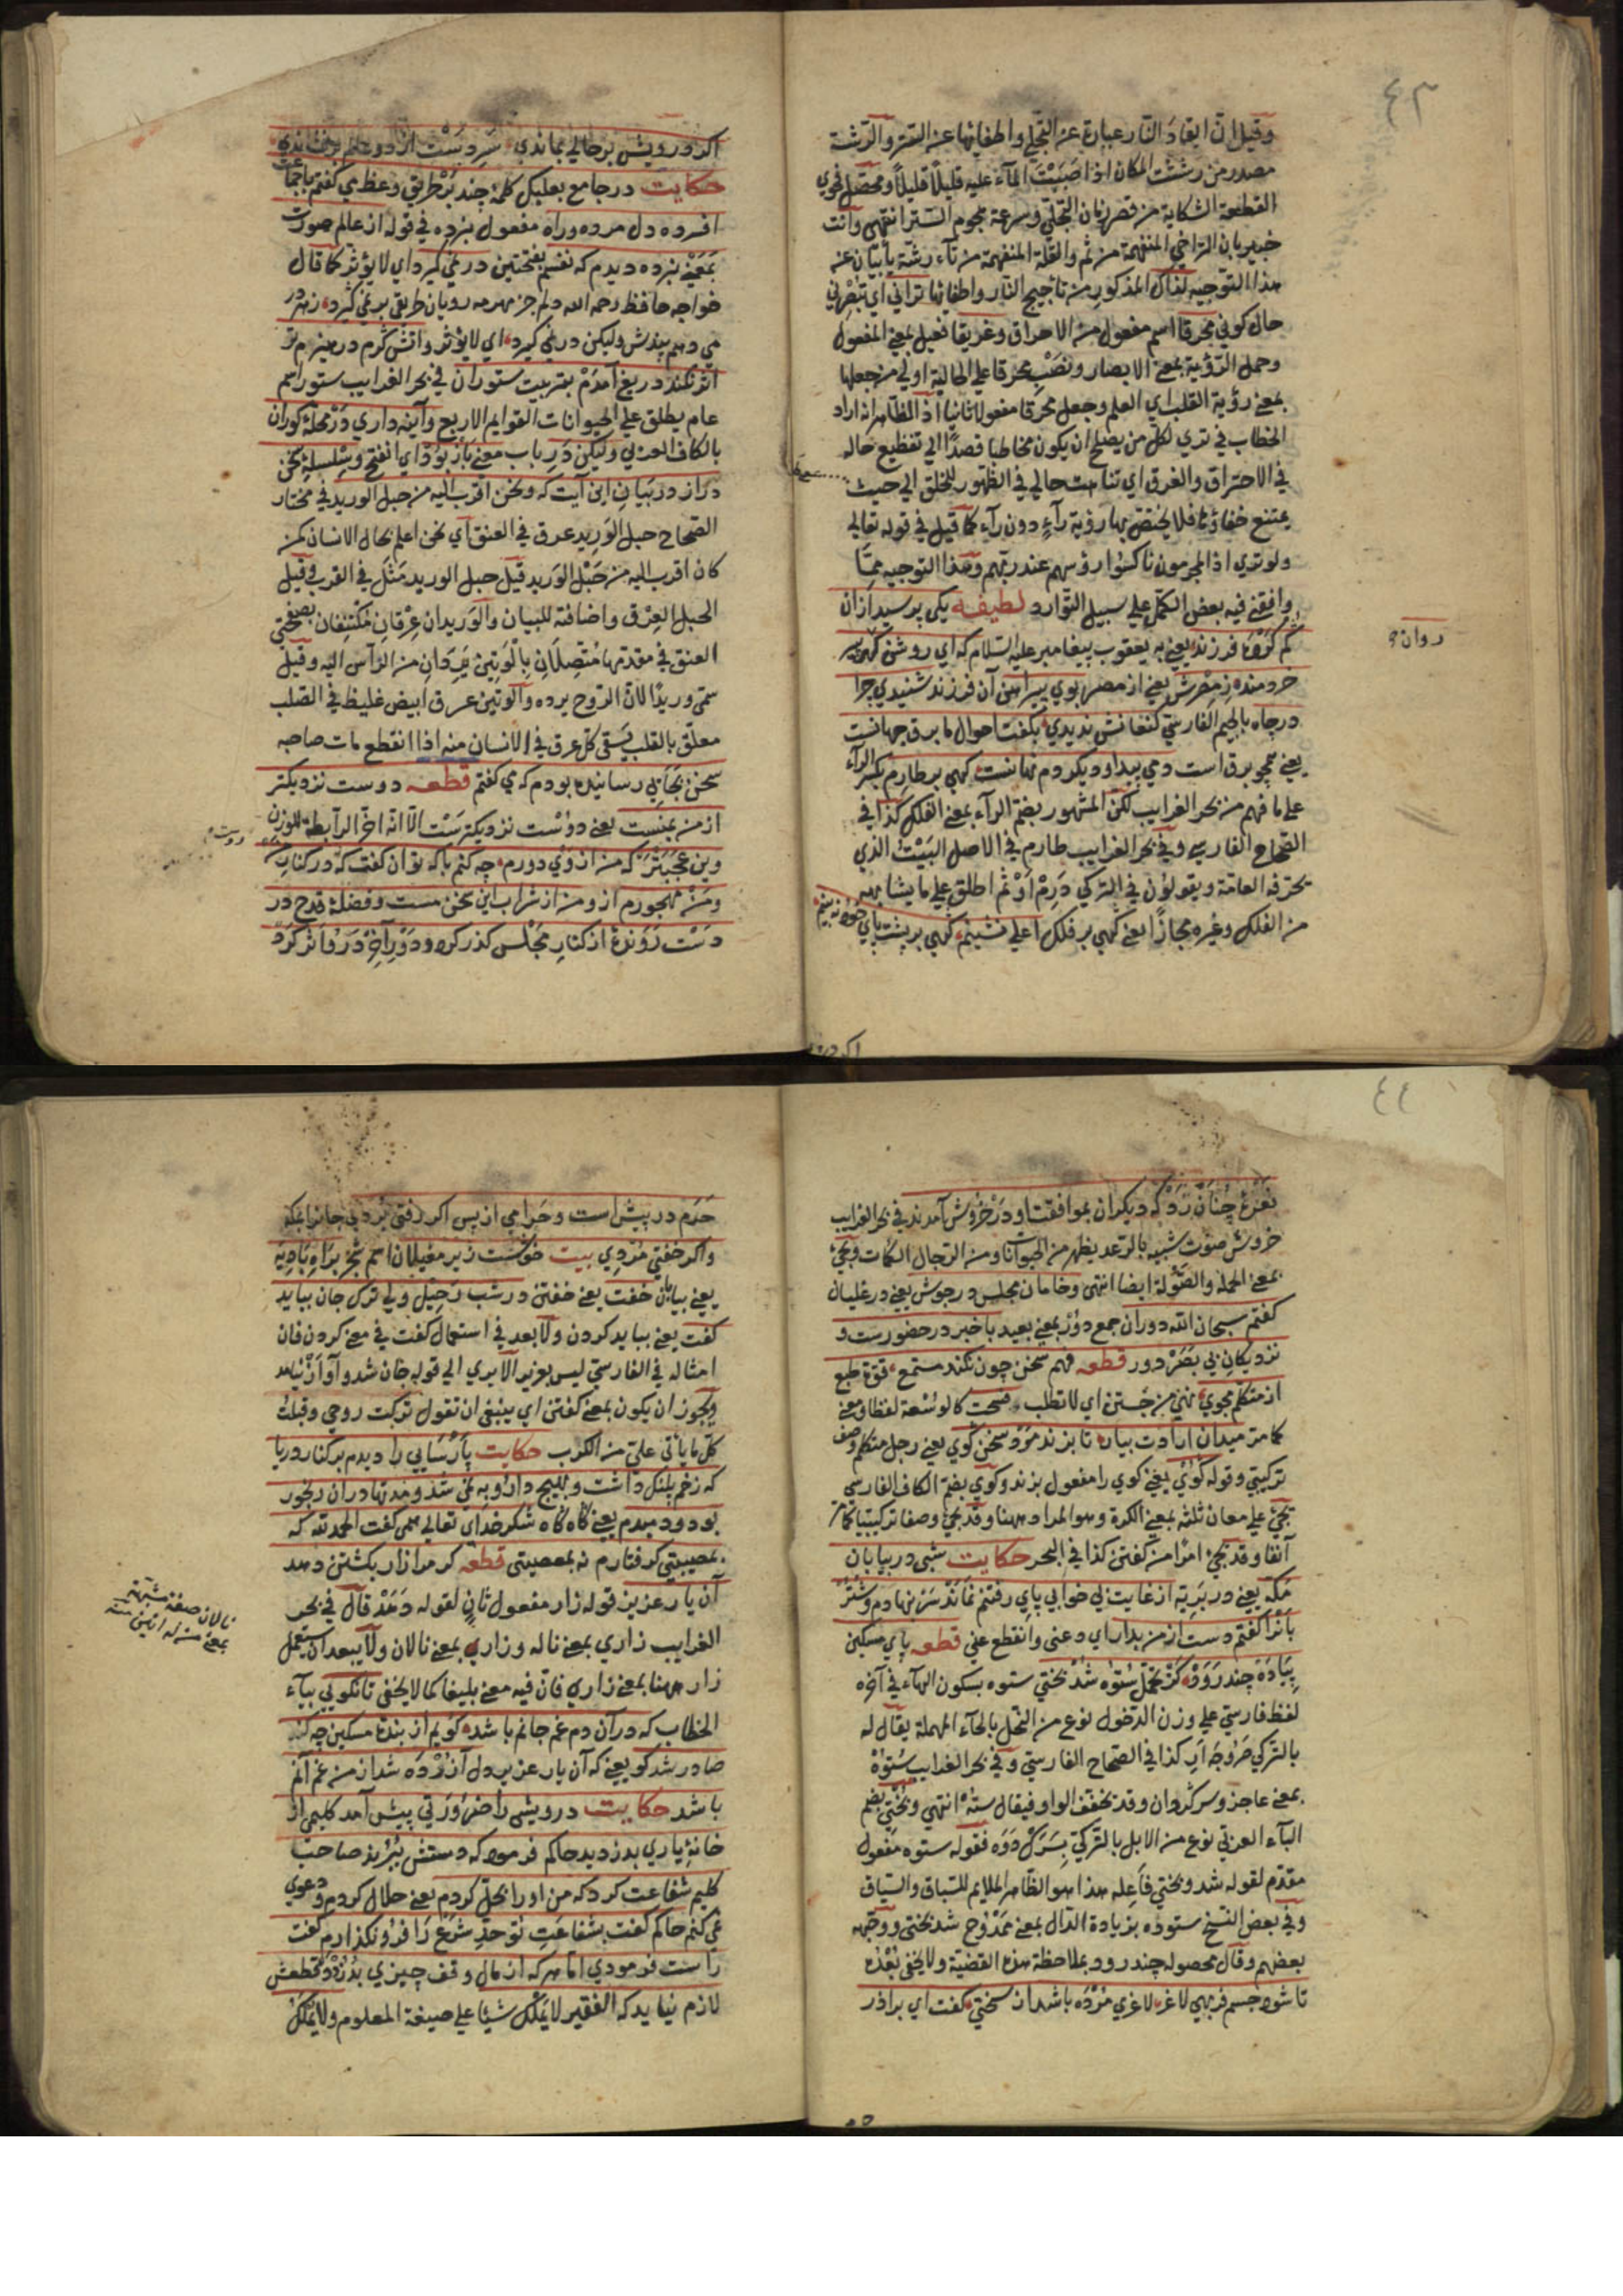 ٤٣
وقيل ان ايقاد النار عبارة عن التجلي واطفائها عن التستر والرشة
مصدر من رششت المكان اذا صببت الماء عليه قليلا قليلا ومحصل فحوي
القطعة الشكاية من قصر زمان التجلي وسرعة هجوم التستر انتهى وانت
خبير بان التراخي المنفهمة من ثم والقلة المنفهمة من تاء رشة يأبيان عنه
هذا التوجيه لذاك المذكور من تاجيج النار واطفائها تراني اي تبصرني
حال كوني محرقا اسم مفعول من الاحراق وغريقا فعيل بمعنى المفعول
وحمل الرؤية بمعنى الابصار ونصب محرقا على الحالية اولى من جعلها
بمعنى رؤية القلب اي العلم وجعل محرقا مفعولا ثانيا اذ الظاهر انه اراد
الخطاب في تري لكل من يصلح ان يكون مخاطبا قصدا الي تفظيع حاله
في الاحتراق والغرق اي تناهت حالي في الظهور للخلق الي حيث
يمتنع خفاؤها فلا يختص بها رؤية رآء دون رآء كما قيل في قوله تعالى
ولو تري اذ المجرمون ناكسوا رؤسهم عند ربهم وهذا التوجيه مما
وافقني فيه بعض الكمل على سبيل التوارد لطيفه يكي پرسيد ازان
كم كرده فرزند يعني به يعقوب پيغامبر عليه السلام كه اي روشن كهر پير
روان و
خردمند زمصرش يعني از مصر بوي پيراهن آن فرزند شنيدي چرا
درچاه بالجيم الفارسي كنعانش نديدي بكفت احوال ما برق جهانست
يعني همچو برق است دمي پيدا وديكر دم نهانست كهي بر طارم بكسر الرآء
على ما فهم من بحر الغرايب لكن المشهور بضم الرآء بمعنى الفلك كذا في
الصحاح الفارسي وفي بحر الغرايب طارم في الاصل البيت الذي
تحرفه العامة ويقولون في التركي درم او ثم اطلق على ما يشابهه
من الفلك وغيره مجازا يعني كهي بر فلك اعلى نشينم كهي بر پشت پاي خود نه بينم
اكر در
اكر درويش بر حالي بماندي سر دست از دو عالم بر فشاندي
حكايت در جامع بعلبك كلمۀ چند بر طريق وعظ مي كفتم با جماعتي
افسرده دل مرده وراه مفعول نبرده في قوله از عالم صورت
بمعني نبرده ديدم كه نفسم بفتحتين در نمي كيرد اي لا يؤثر كما قال
خواجه حافظ رحمه الله دلم جز مهر مه رويان طريقي بر نمي كيرد زهر در
مي دهم پندش وليكن در نمي كيرد اي لا يؤثر واتش كرم در هيزم تر
اثر نكند دريغ آمدم بتربيت ستوران في بحر الغرايب ستور اسم
عام يطلق على الحيوانات القوايم الاربع وآينه داري در محلۀ كوران
بالكاف العربي وليكن در باب معني باز بود اي انفتح وسلسلۀ سخن
دراز در بيان اين آيت كه ونحن اقرب اليه من حبل الوريد في مختار
الصحاح حبل الوريد عرق في العنق اي نحن اعلم بحال الانسان ممن
كان اقرب اليه من حبل الوريد قيل حبل الوريد مثل في القرب وقيل
الحبل العرق واضافته للبيان والوريدان عرقان مكتنفان بصفحتي
العنق في مقدمتها متصلان بالوتين يردان من الرأس اليه وقيل
سمي وريدا لان الروح يرده والوتين عرق ابيض غليظ في الصلب
معلق بالقلب يسقي كل عرق في الانسان منه اذا انقطع مات صاحبه
سخن بجايي رسانيده بودم كه مي كفتم قطعه دوست نزديكتر
از من بمنست يعني دوست نزديكترست الا انه اخر الرابطة للوزن
وين عجبتر كه من از وي دورم چه كنم با كه توان كفت كه در كنار
ومن مهجورم از ومن از شراب اين سخن مست وفضلۀ قدح در
دست روندۀ از كنار مجلس كذر كرد ودور آخر درو اثر كرد
٤٤
نعرۀ چنان زد كه ديكران بموافقت او در خروش آمدند في بحر الغرايب
خروش صوت شبيه بالرعد يظهر من الحيوانات ومن الرجال الكمات ويجئ
بمعنى الحملة والصولة ايضا انتهى وخامان مجلس در جوش يعني در غليان
كفتم سبحان الله دوران جمع دور بمعني بعيد با خبر در حضورست و
نزديكان بي بصر دور قطعه فهم سخن چون نكند مستمع قوة طبع
از متكلم مجوي نهي من جستن اي لا تطلب فسحت كالوسعة لفظا ومعنى
كما مر ميدان ارادت بيار تا بزند مرد سخن كوي يعني رجل متكلم وصف
تركيبي وقوله كوي يعني كوي را مفعول بزند وكوي بضم الكاف الفارسي
تجئ على معان ثلثة بمعنى الكرة وهو المراد ههنا وقد يجئ وصفا تركيبيا كما مر
آنفا وقد يجئ امرا من كفتن كذا في البحر حكايت شبي در بيابان
مكه يعني در بريه از غايت بي خوابي پاي رفتنم نماند سر بنهادم وشتر
بانرا كفتم دست از من بدار اي دعني وانقطع عني قطعه پاي مسكين
پياده چند رود كز تحمل ستوه شد بختي ستوه بسكون الهآء في آخره
لفظ فارسي على وزن الدخول نوع من النحل بالحآء المهملة يقال له
بالتركي خروجه ار كذا في الصحاح الفارسي وفي بحر الغرايب ستوه
بمعنى عاجز وسركردان وقد يخفف الواو فيقال سته انتهى وبختي بضم
البآء العربي نوع من الابل بالتركي بسرك دوه فقوله ستوه مفعول
مقدم لقوله شد وبختي فاعله هذا هو الظاهر الملايم للسباق والسياق
وفي بعض النسخ ستوده بزيادة الدال بمعنى ممدوح شد بختي ووجهه
بعضهم وقال محصوله چند رود بملاحظة هذه القضية ولا يخفى بعده
تا شود جسم فربهي لاغر لاغري مرده باشد از سختي كفت اي برادر
حرم در پيش است وحرامي از پس اكر رفتي بردي جانرا بمكه
واكر خفتي مردي بيت خوشست زير مغيلان اسم شجر براه باديه
يعني بيابان خفت يعني خفتن در شب رحيل ولي ترك جان ببايد
كفت يعني ببايد كردن ولا بعد في استعمال كفت في معنى كردن فان
امثاله في الفارسي ليس بعزيز الا يري الي قوله جان شد وآواز نيامد
ويجوز ان يكون بمعنى كفتن اي ينبغي ان تقول تركت روحي وقبلت
كل ما يأتي على من الكرب حكايت پارسايي را ديدم بر كنار دريا
كه زخم پلنك داشت وبهيچ دارو به نمي شد ومدتها دران رنجور
بود ودمبدم يعني كاه كاه شكر خداي تعالى همي كفت الحمد لله كه
بمصيبتي كرفتارم نه بمعصيتي قطعه كر مرا زار بكشتن دهد
آن يار عزيز قوله زار مفعول ثان لقوله دهد قال في بحر
الغرايب زاري بمعنى ناله وزاري بمعنى نالان ولا يبعد ان يستعمل
زار ههنا بمعنى زاري فان فيه معنى بليغا كما لا يخفى تا نكويي بيآء
الخطاب كه در آن دم غم جانم باشد كويم از بندۀ مسكين چه كنه
صادر شد كو يعني كه آن يار عزيز دل آزرده شد از من غم آنم
باشد حكايت درويشي را ضرورتي پيش آمد كليمي از
خانۀ ياري بدزديد حاكم فرمود كه دستش ببريد صاحب
كليم شفاعت كرد كه من او را بحل كردم يعني حلال كردم ودعوي
نمي كنم حاكم كفت بشفاعت تو حد شرع را فرو نكذارم كفت
راست فرمودي اما هر كه از مال وقف چيزي بدزدد قطعش
لازم نيايد كه الفقير لا يملك شيئا على صيغة المعلوم ولا يملك
نالان صفة مشبهة